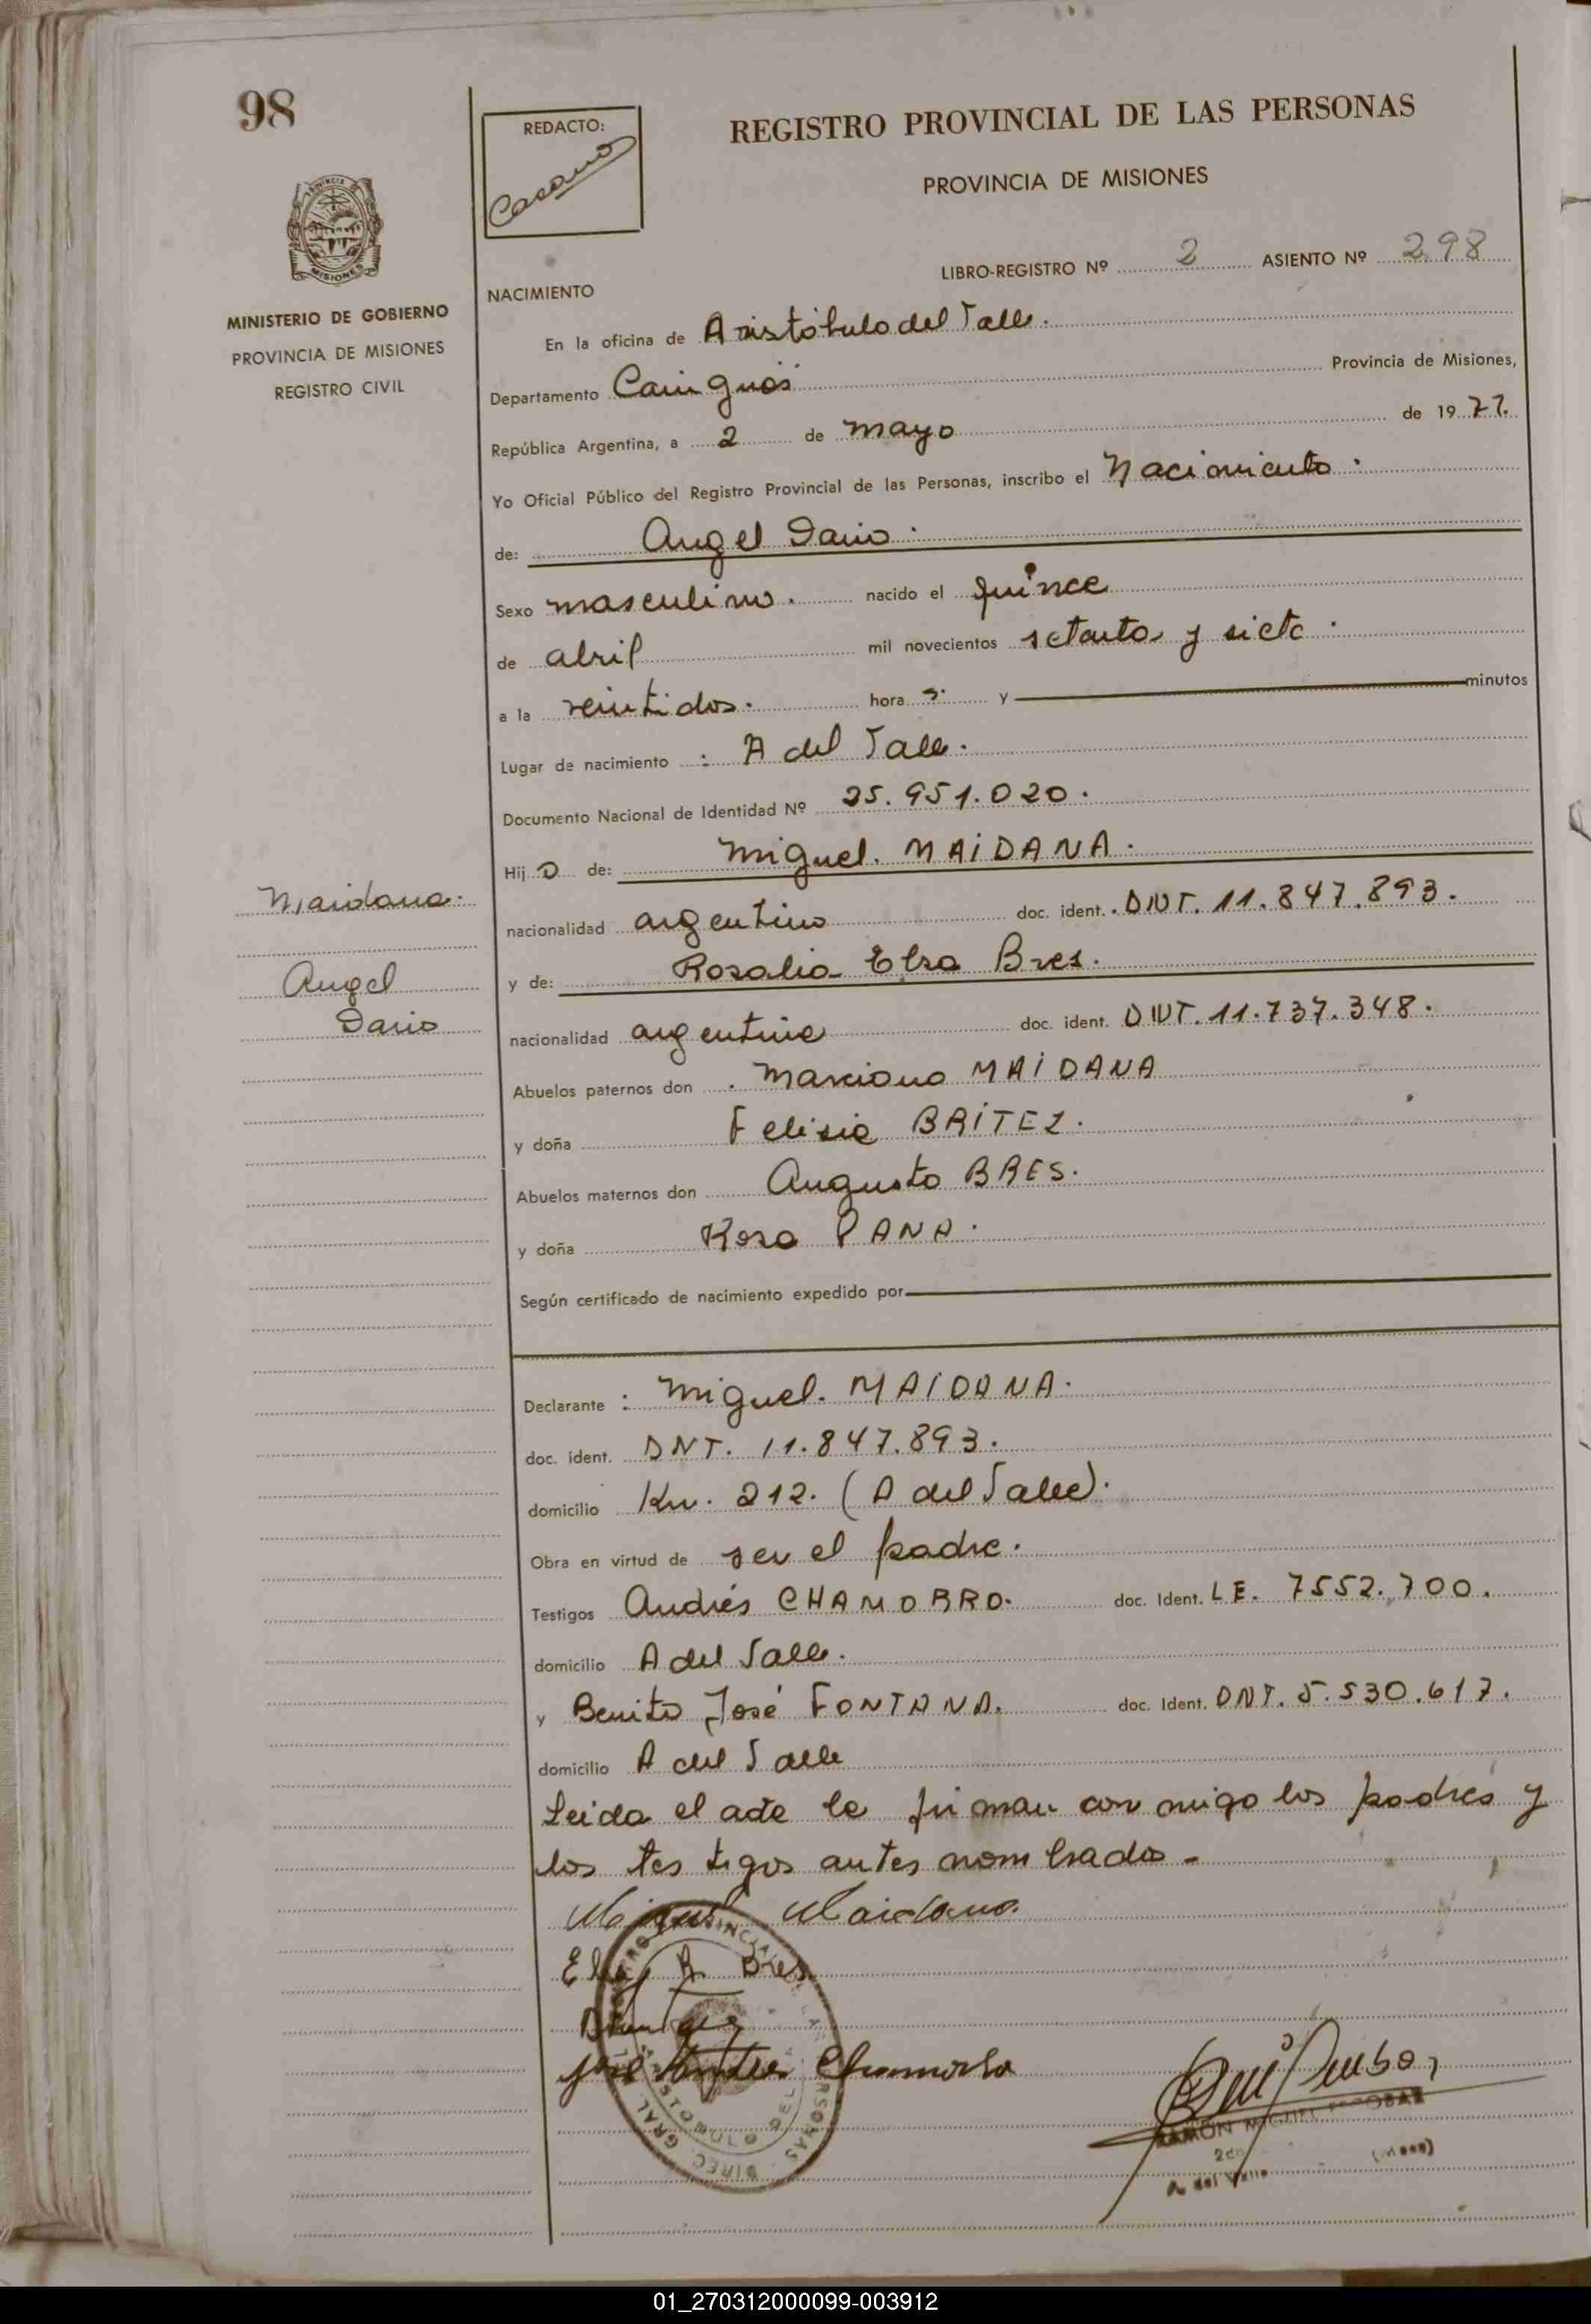 98
REDACTO:
REGISTRO PROVINCIAL DE LAS PERSONAS
PROVINCIA DE MISIONES
LIBRO-REGISTRO Nº 2 ASIENTO Nº 298
MISIONES
MINISTERIO DE GOBIERNO
PROVINCIA DE MISIONES
REGISTRO CIVIL
NACIMIENTO
En la oficina de Aristóbulo del Valle.
Departamento Cainguás Provincia de Misiones,
República Argentina, a 2 de mayo de 1977.
Yo Oficial Público del Registro Provincial de las Personas, inscribo el Nacimiento.
de: Angel Dario.
Sexo masculino. nacido el quince
de abril mil novecientos setenta y siete.
a la veintidos. hora s. y minutos
Lugar de nacimiento : A del Valle.
Documento Nacional de Identidad Nº 25.951.020.
Hij o de: Miguel. MAIDANA.
nacionalidad argentino doc. ident. DNT. 11.847.893.
Maidana.
Angel
Dario
y de: Rosalia Elsa Bres.
nacionalidad argentina doc. ident. DNT. 11.737.348.
Abuelos paternos don Marciano MAIDANA
y doña Felisia BRITEZ.
Abuelos maternos don Augusto BRES.
y doña Rosa PANA.
Según certificado de nacimiento expedido por
Declarante : Miguel. MAIDANA.
doc. ident. DNT. 11.847.893.
domicilio Km. 212. (A del Valle).
Obra en virtud de ser el padre.
Testigos Andrés CHAMORRO. doc. Ident. LE. 7552.700.
domicilio A del Valle.
y Benito José FONTANA. doc. Ident. DNT. 5.530.617.
domicilio A del Valle
Leida el acta la firman con migo los padres y
los testigos antes nombrados -
Miguel Maidana
Elsa R. Bres
Chamorro
RAMÓN MIGUEL ESCOBAR
A. del Valle (Mnes)
01_270312000099-003912